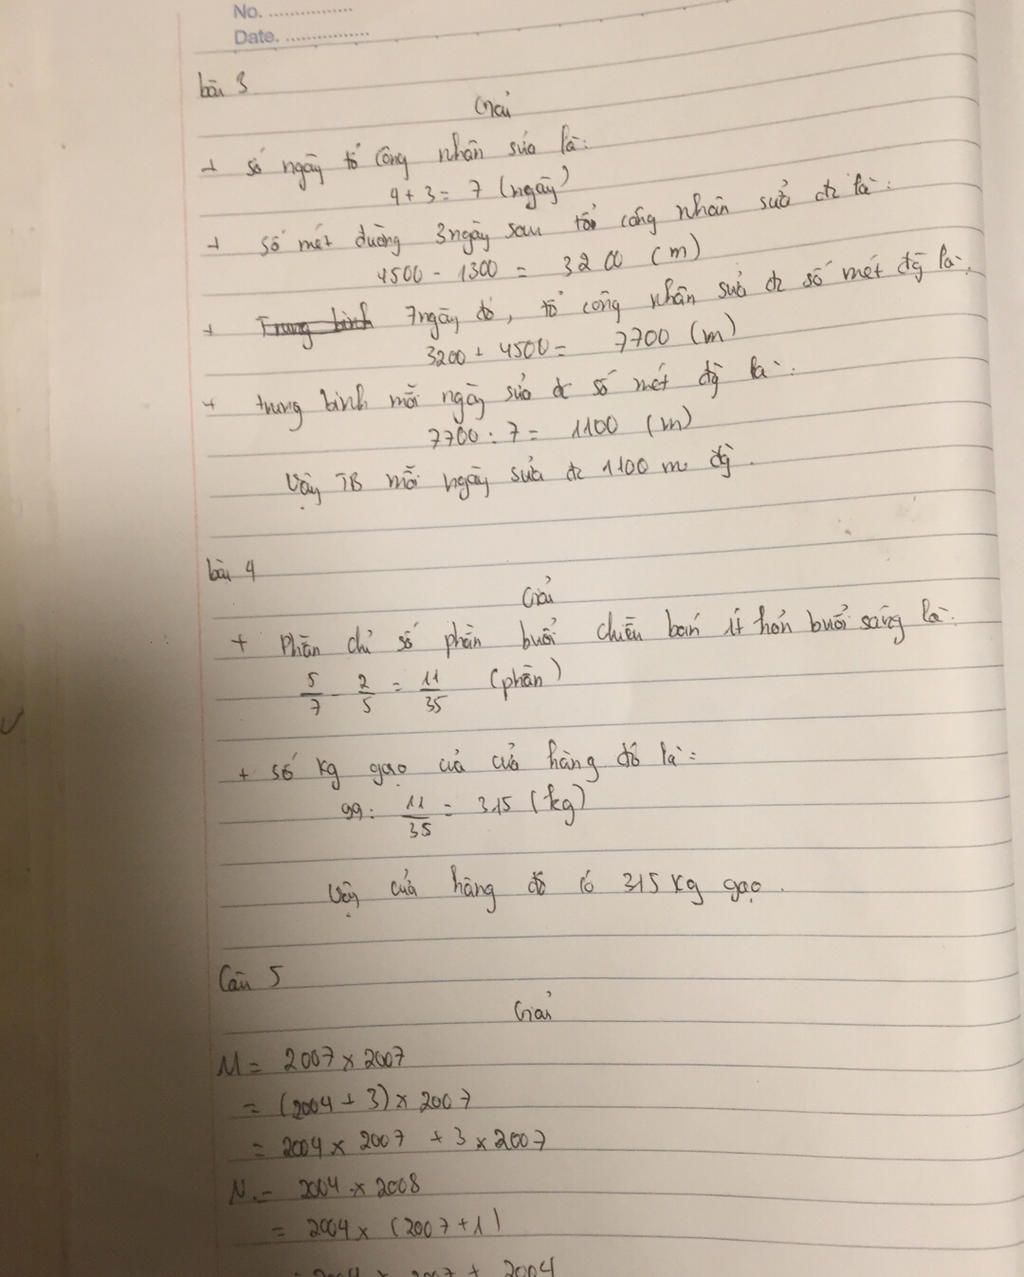 No. ................
Date. ................
bài 3
Giải
+ số ngày tổ công nhân sửa là:
4 + 3 = 7 (ngày)
+ số mét đường 3 ngày sau tổ công nhân sửa đc là:
4500 - 1300 = 3200 (m)
+ Trung bình 7 ngày đó, tổ công nhân sửa đc số mét đg là:
3200 + 4500 = 7700 (m)
+ trung bình mỗi ngày sửa đc số mét đg là:
7700 : 7 = 1100 (m)
Vậy TB mỗi ngày sửa đc 1100 m đg.
bài 4
Giải
+ Phân chỉ số phần buổi chiều bán ít hơn buổi sáng là:
5/7 - 2/5 = 11/35 (phần)
+ số kg gạo của cửa hàng đó là:
99 : 11/35 = 315 (kg)
Vậy cửa hàng đó có 315 kg gạo.
Câu 5
Giải
M = 2007 x 2007
= (2004 + 3) x 2007
= 2004 x 2007 + 3 x 2007
N = 2004 x 2008
= 2004 x (2007 + 1)
= 2004 x 2007 + 2004